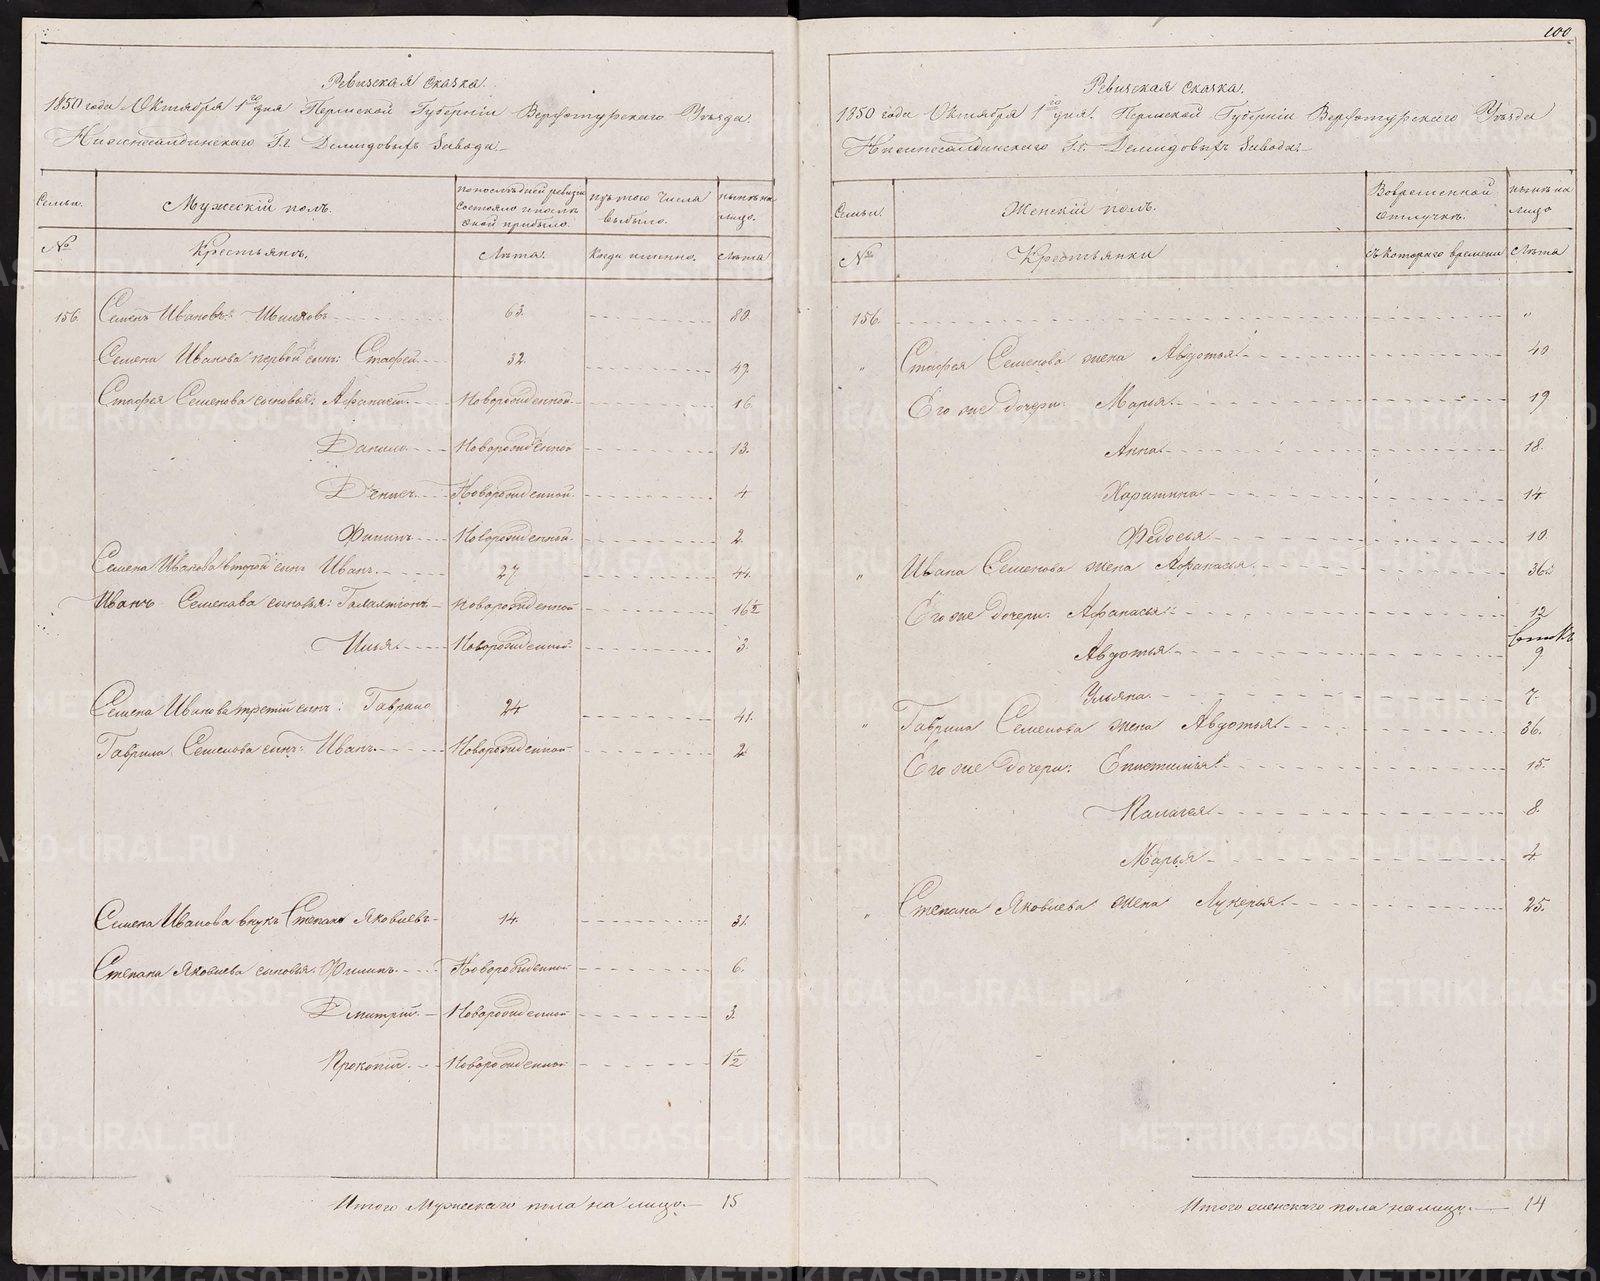 Ревизская сказка.
1850 года Октября 1го дня Пермской Губернiи Верхотурскаго Уѣзда
Нижнесалдинскаго Г.г. Демидовыхъ Завода
Семьи. Мужескiй полъ. по послѣдней ревизiи состояло и послѣ оной прибыло. изъ того числа выбыло. нынѣ на лицо.
№ Крестьянъ. Лѣта. Когда именно. Лѣта
156. Семенъ Ивановъ 63. 80.
Семена Иванова первой сынъ: Стафей 32. 49.
Стафея Семенова сыновья: Новорожденной 16.
Данило Новорожденной 13.
Денисъ Новорожденной 4
Филипъ Новорожденной 2.
Семена Иванова второй сынъ Иванъ 27 44.
Иванъ Семенова сыновья: Галактiонъ Новорожденной 16 1/2
Илья Новорожденной 3.
Семена Иванова третiй сынъ: Гаврило 24 41.
Гаврила Семенова сынъ: Иванъ Новорожденной 2
Семена Иванова внукъ Степанъ Яковлевъ 14. 31.
Степана Яковлева сыновья: Филипъ Новорожденной 6.
Дмитрiй Новорожденной 3.
Прокопiй Новорожденной 1 1/2
Итого Мужескаго пола на лицо 15
100
Ревизская сказка.
1850 года Октября 1го дня Пермской Губернiи Верхотурскаго Уѣзда
Нижнесалдинскаго Г.г. Демидовыхъ Завода
Семьи. Женскiй полъ. Во временной отлучкѣ. нынѣ на лицо
№ Крестьянки Съ котораго времени Лѣта
156. "
" Стафея Семенова жена Авдотья 40
Его же дочери: Марья 19
Анна 18.
Харитина 14
Федосья 10.
" Ивана Семенова жена Афанасья 36.
Его же дочери: Афанасья 12
Авдотья 9
Ульяна 7.
" Гаврила Семенова жена Авдотья 36.
Его же дочери: Епистимья 15.
Палагея 8.
Марья 4.
" Степана Яковлева жена Лукерья 25.
Итого женскаго пола на лицо 14
METRIKI.GASO-URAL.RU